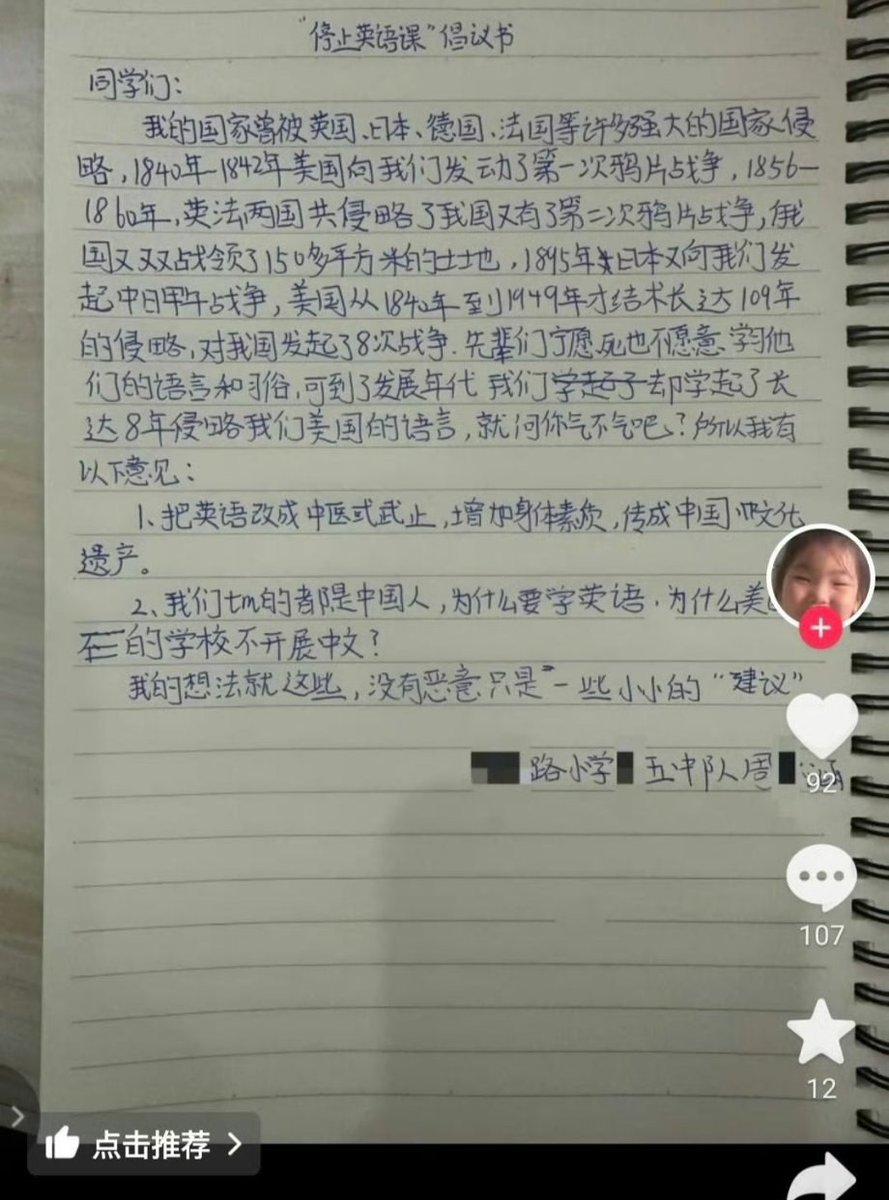 "停止英语课"倡议书
同学们：
我的国家曾被英国、日本、德国、法国等许多强大的国家侵
略，1840年-1842年美国向我们发动了第一次鸦片战争，1856—
1860年，英法两国共侵略了我国又有了第二次鸦片战争，俄
国又双战领了150多平方米的土地，1895年日本又向我们发
起中日甲午战争，美国从1840年到1949年才结术长达109年
的侵略，对我国发起了8次战争.先辈们宁愿死也不愿意学习他
们的语言和习俗，可到了发展年代 我们学起了却学起了长
达8年侵略我们美国的语言，就问你气不气吧？所以我有
以下意见：
1、把英语改成中医式武止，增加身体素质，传成中国文化
遗产。
2、我们tm的都是中国人，为什么要学英语.为什么美
的学校不开展中文？
我的想法就这些，没有恶意只是"一些小小的"建议"
路小学 五中队周 涵
92
107
12
点击推荐